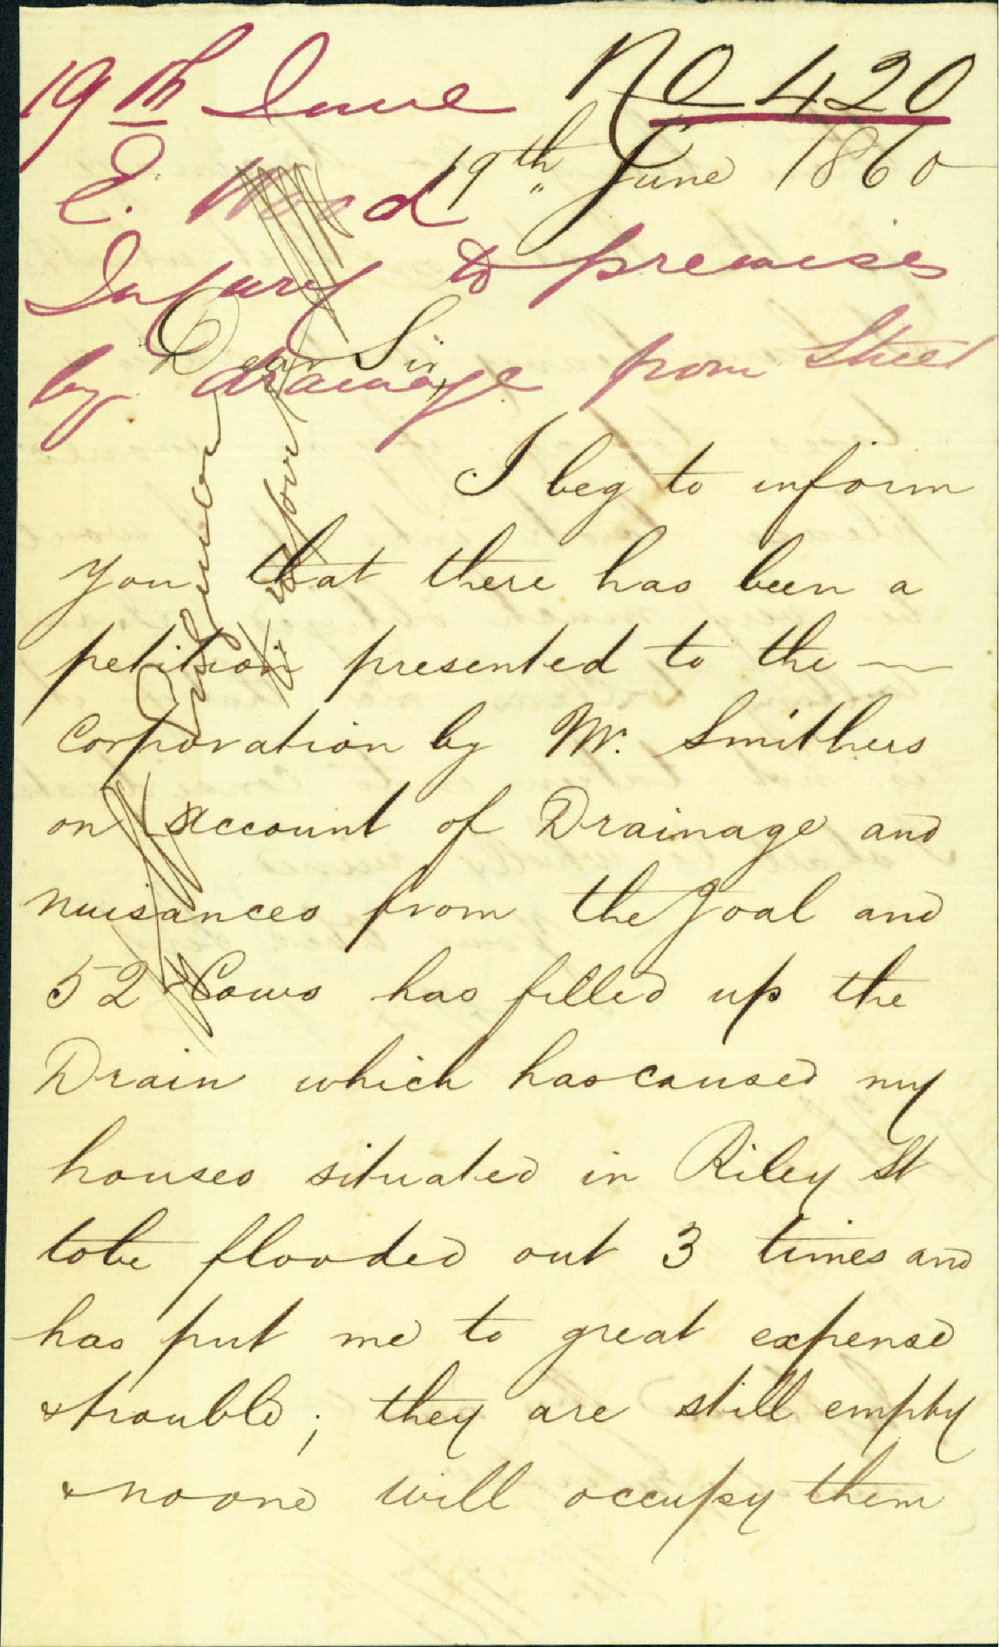 19th June No 420
E. Wood
19th June 1860
Injury to premises
by drainage from Street
Dear Sir,
I beg to inform
you that there has been a
petition presented to the
Corporation by Mr. Smithers
on account of Drainage and
nuisances from the Goal and
52 Cows has filled up the
Drain which has caused my
houses situated in Riley St
to be flooded out 3 times and
has put me to great expense
& trouble; they are still empty
& no one will occupy them
to report